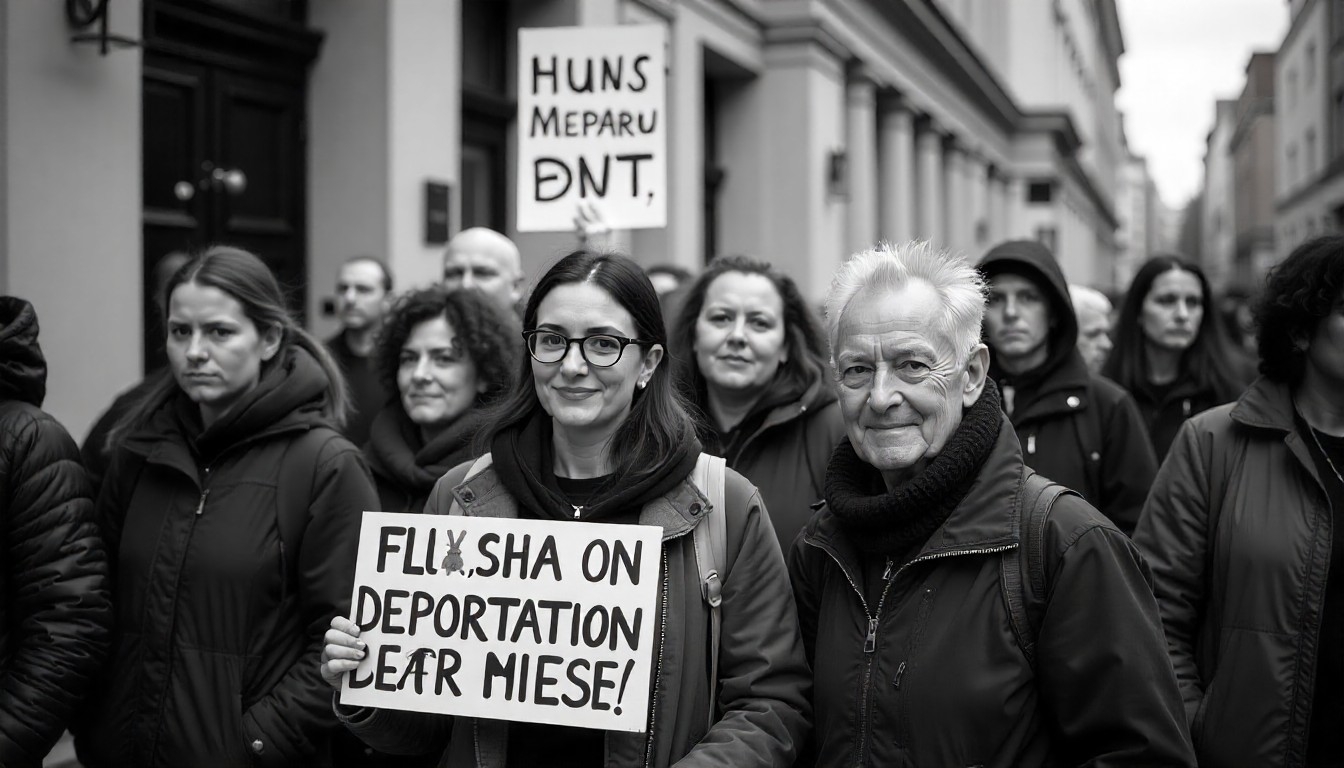 HUNS
MEPARU
ĐNT,
FLI ,SHA ON
DEPORTATION
DEAR MIESE!